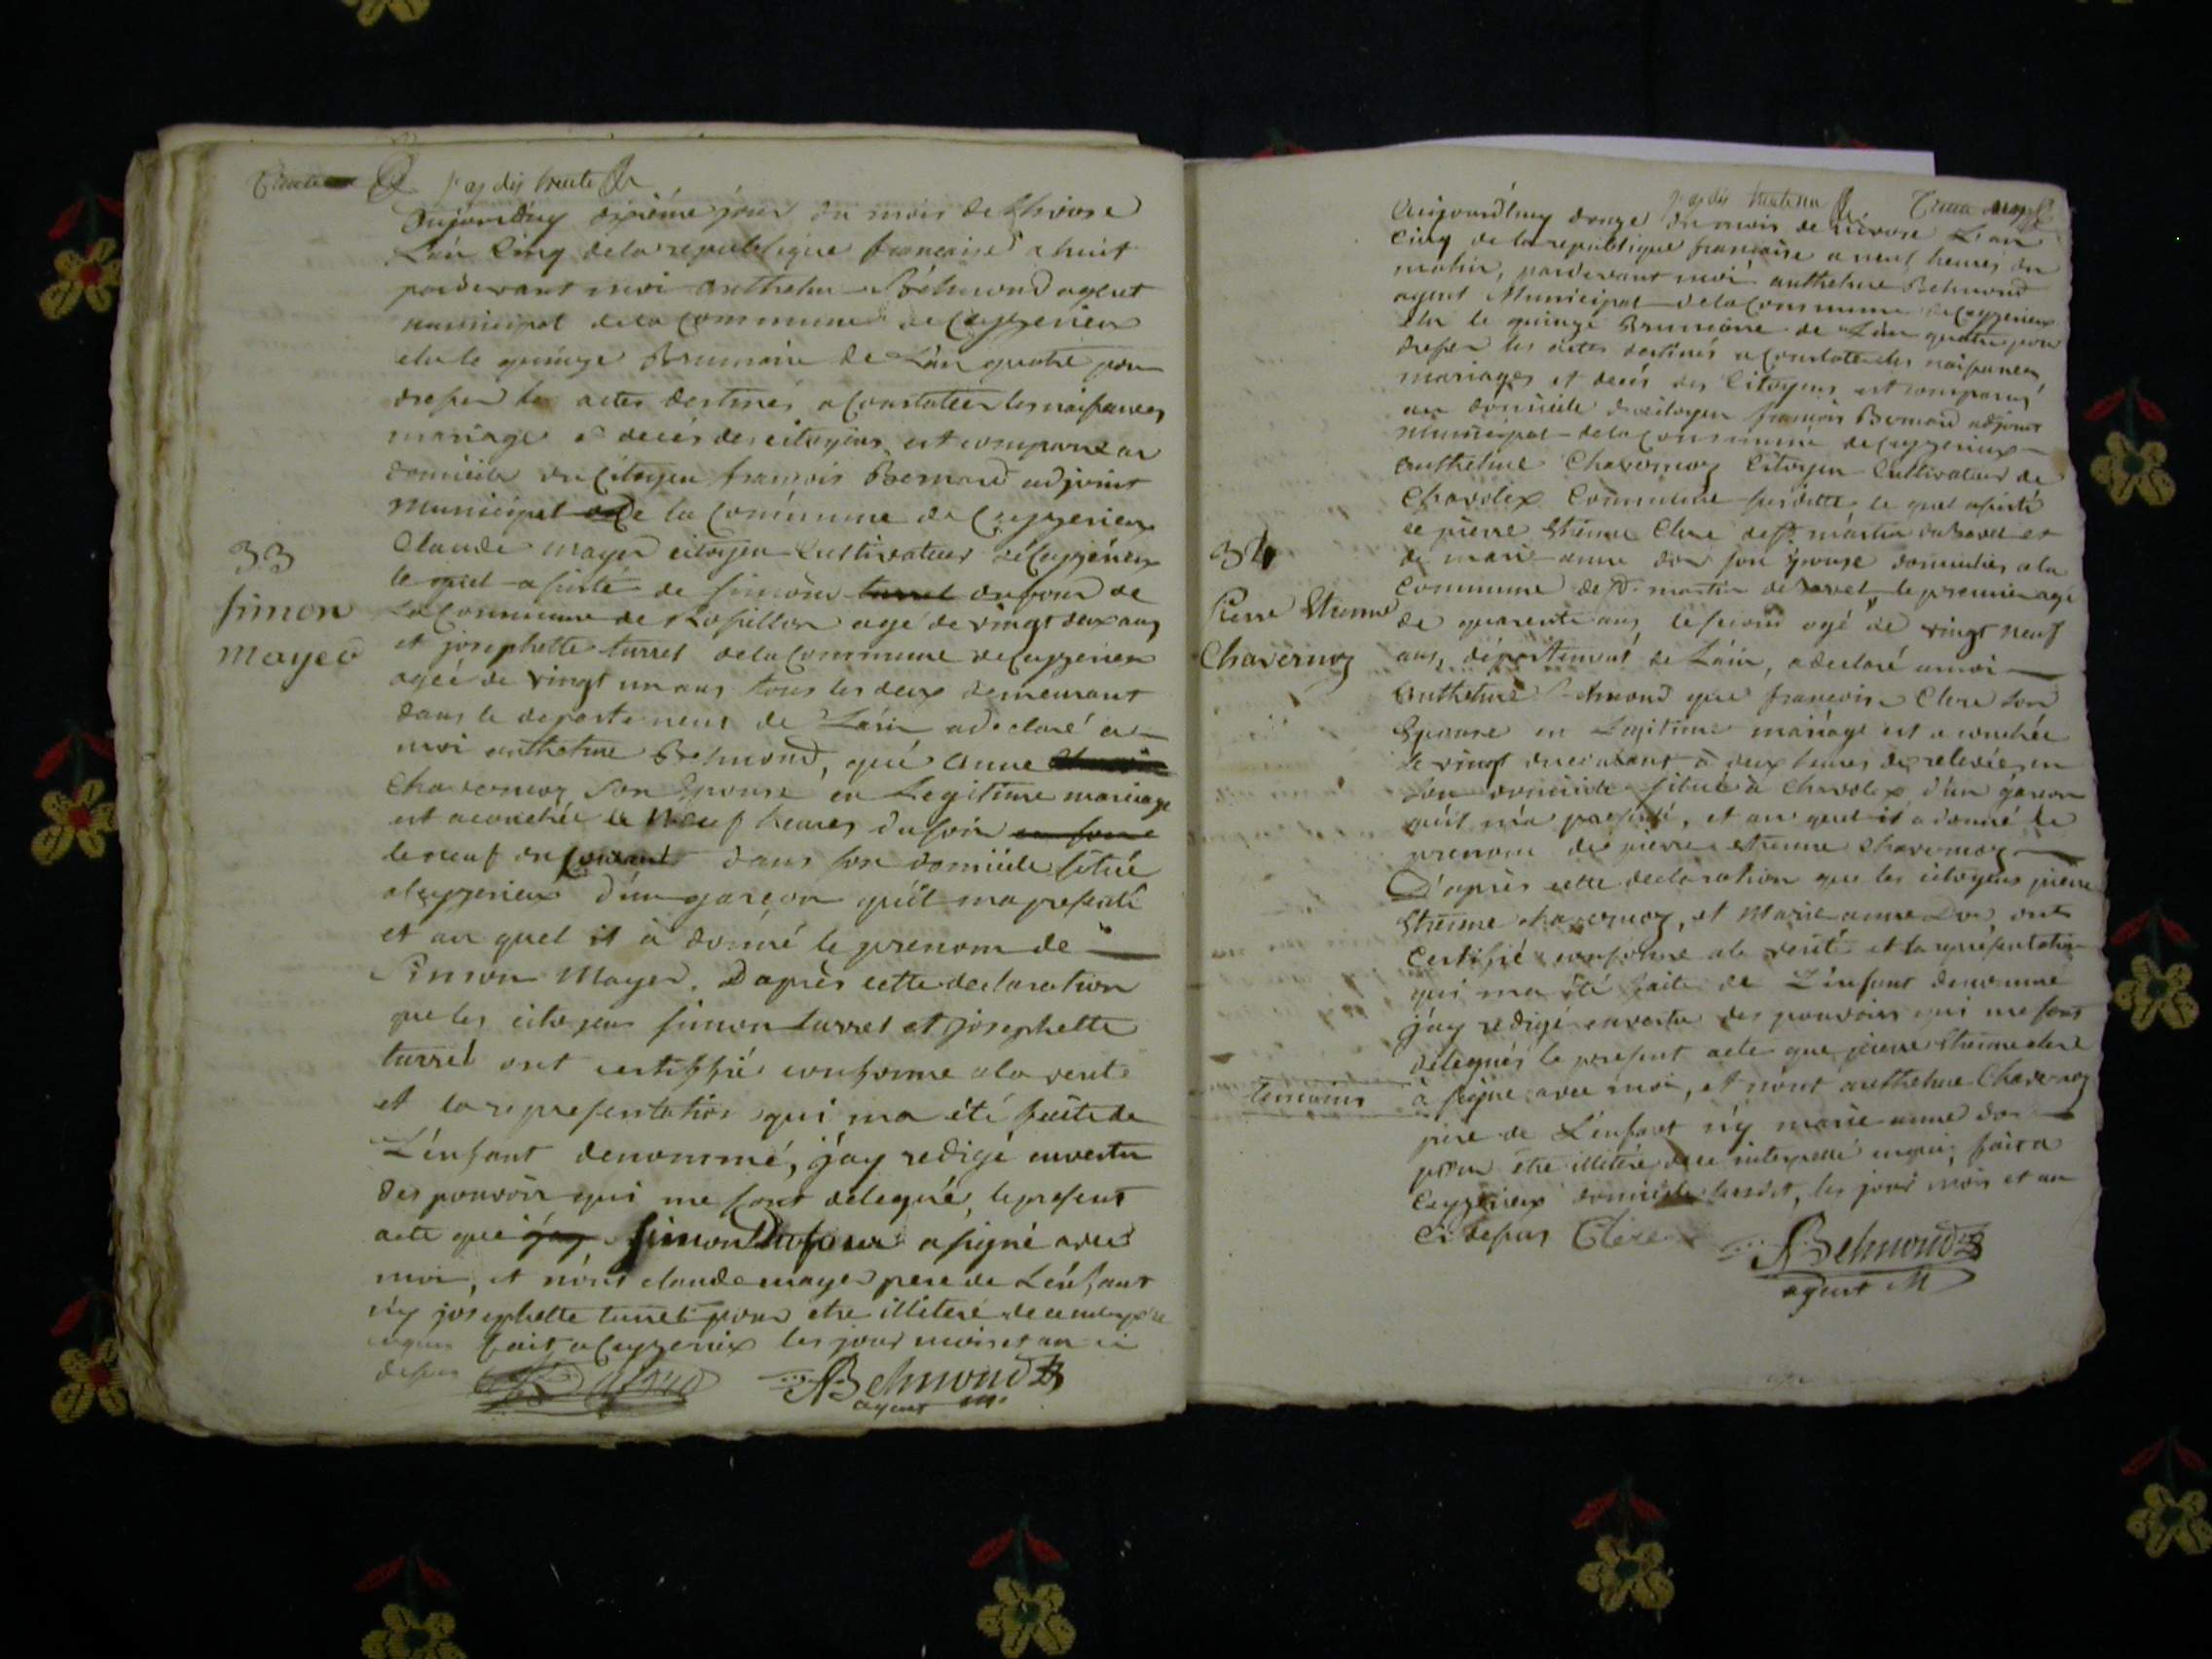 j'ay dis trente
Aujourd'huy dixième jour du mois de Nivose
L'an Cinq de la republique française a huit
pardevant moi anthelme Belmond agent
municipal de la Commune de Ceyzerieu
elu le quinze Brumaire de L'an quatre pour
dresser les actes destinés a Constater les naissances
mariage et decés des citoyens est comparu au
domicile du Citoyen françois Bernard adjoint
Municipal de la Commune de Ceyzerieux
Claude mayer citoyen Cultivateur de Ceyzérieu
33
Simon
Mayer
le quel assisté de simon turrel dufour de
La Commune de Rossillon agé de vingt deux ans
et josephette turrel de la Commune de Ceyzerieu
agée de vingt un ans tous les deux demeurant
dans le departement de L'ain a declaré a
moi anthelme Belmond, que anne
Chavernoz son Epouse en Legitime mariage
est acouchée a Neuf heures du soir
le neuf du Courant dans son domicile situé
a Ceyzerieux d'un garçon qu'il ma presenté
et au quel il à donné le prenom de
Simon Mayer. D'après cette declaration
que les citoyens simon turrel et josephette
turrel ont certiffié conforme a la verité
et la representation qui ma été faite de
L'énfant denommé, j'ay redigé en vertu
des pouvoir qui me sont delegué, le present
acte que j'ay simon Dufour a signé avec
moi, et n'ont claude mayer pere de L'énfant
n'y josephette turrel pour etre illiteré de ce
fait a Ceyzerieux les jour mois et an ci
dessus
Belmond
agent m.
j'ay dis trente un
Aujourd'huy douze du mois de nivose L'an
Cinq de la republique française a neuf heures du
matin, pardevant moi anthelme Belmond
agent Municipal de la Commune de Ceyzerieux
elu le quinze Brumaire de L'an quatre pour
dresser les actes destinés a Constater les naissances
mariages et decés des Citoyens est comparu
au domicile du citoyen françois Bernard adjoint
Municipal de la Commune de Ceyzerieux
anthelme Chavernoz Citoyen Cultivateur de
Chavolex Commune susditte le quel assisté
34
Pierre Etienne
Chavernoz
de pierre Etienne Clere de St martin de Bavel et
de marie anne dor son épouse domiciliés a la
Commune de St martin de Bavel le premier agé
de quarente ans le second agé de vingt neuf
ans, département de L'ain, a declaré a moi
Anthelme Belmond que françoise Clere son
Epouse en Legitime mariage est acouchée
le vingt du courant à deux heures de relevée en
son domicile situé à Chavolex d'un garçon
qu'il m'a presenté, et au quel il a donné le
prenom de pierre etienne chavernoz
D'après cette declaration que les citoyens pierre
Etienne chavernoz, et Marie anne Dor, ont
Certifié conforme a la verité et la representation
qui ma été faite de L'énfant denommé
j'ay redigé en vertu des pouvoirs qui me sont
délegués le present acte que pierre Etienne clere
temoins
à signé avec moi, et n'ont anthelme Chavernoz
père de L'enfant n'y marie anne dor
pour être illiteré de ce interpellé fait a
Ceyzerieux domicile susdit, les jour mois et an
Ci dessus Clere
Belmond
agent M